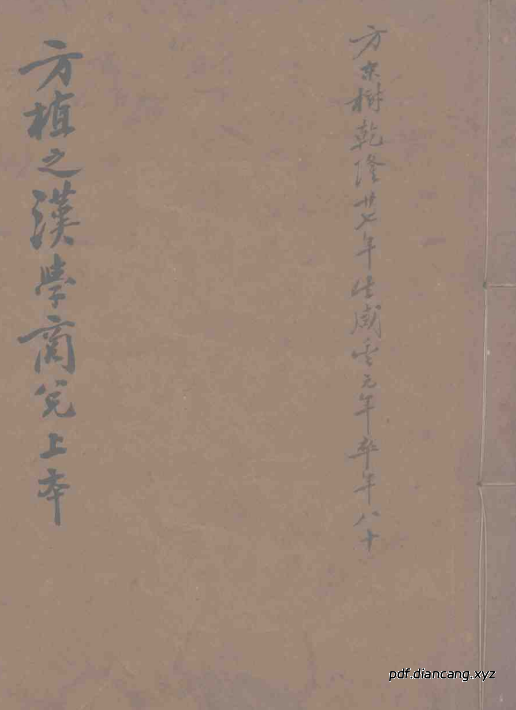 方東樹乾隆卅七年生咸豐元年卒年八十
方植之漢學商兊上本
pdf.diancang.xyz